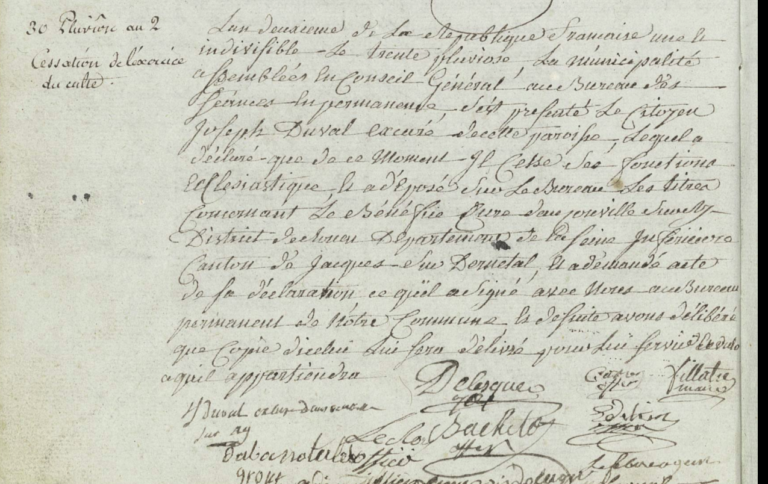 30 Pluviôse au 2
Cessation de l'exercice
du culte.
L'an deuxieme de La Republique Francaise une et
indivisible Le trente pluviose, La municipalité
assemblées En Conseil Général au Bureau des
Séances En permanence, s'est presenté Le Citoyen
Joseph Duval excuré de cette paroisse, Lequel a
déclaré que de ce Moment Il Cesse Ses fonctions
Ecclesiastique Et a déposé Sur Le Bureau Les titres
Concernant Le Bénéfice Cure Sur Ry
District de Rouen Departement de La Seine Inferieure
Canton de Jacques Sur Dernetal, Et a demandé acte
de sa déclaration ce qu'il a Signé avec Nous au Bureau
permanent de Nôtre Commune Et de suite avons déliberé
que Copie d'icelui Lui sera délivré pour Lui Servir
a qu'il appartiendra
Delesque Villatte
off maire
JDuval
sur Ry Leclo Bachelet
officié offier